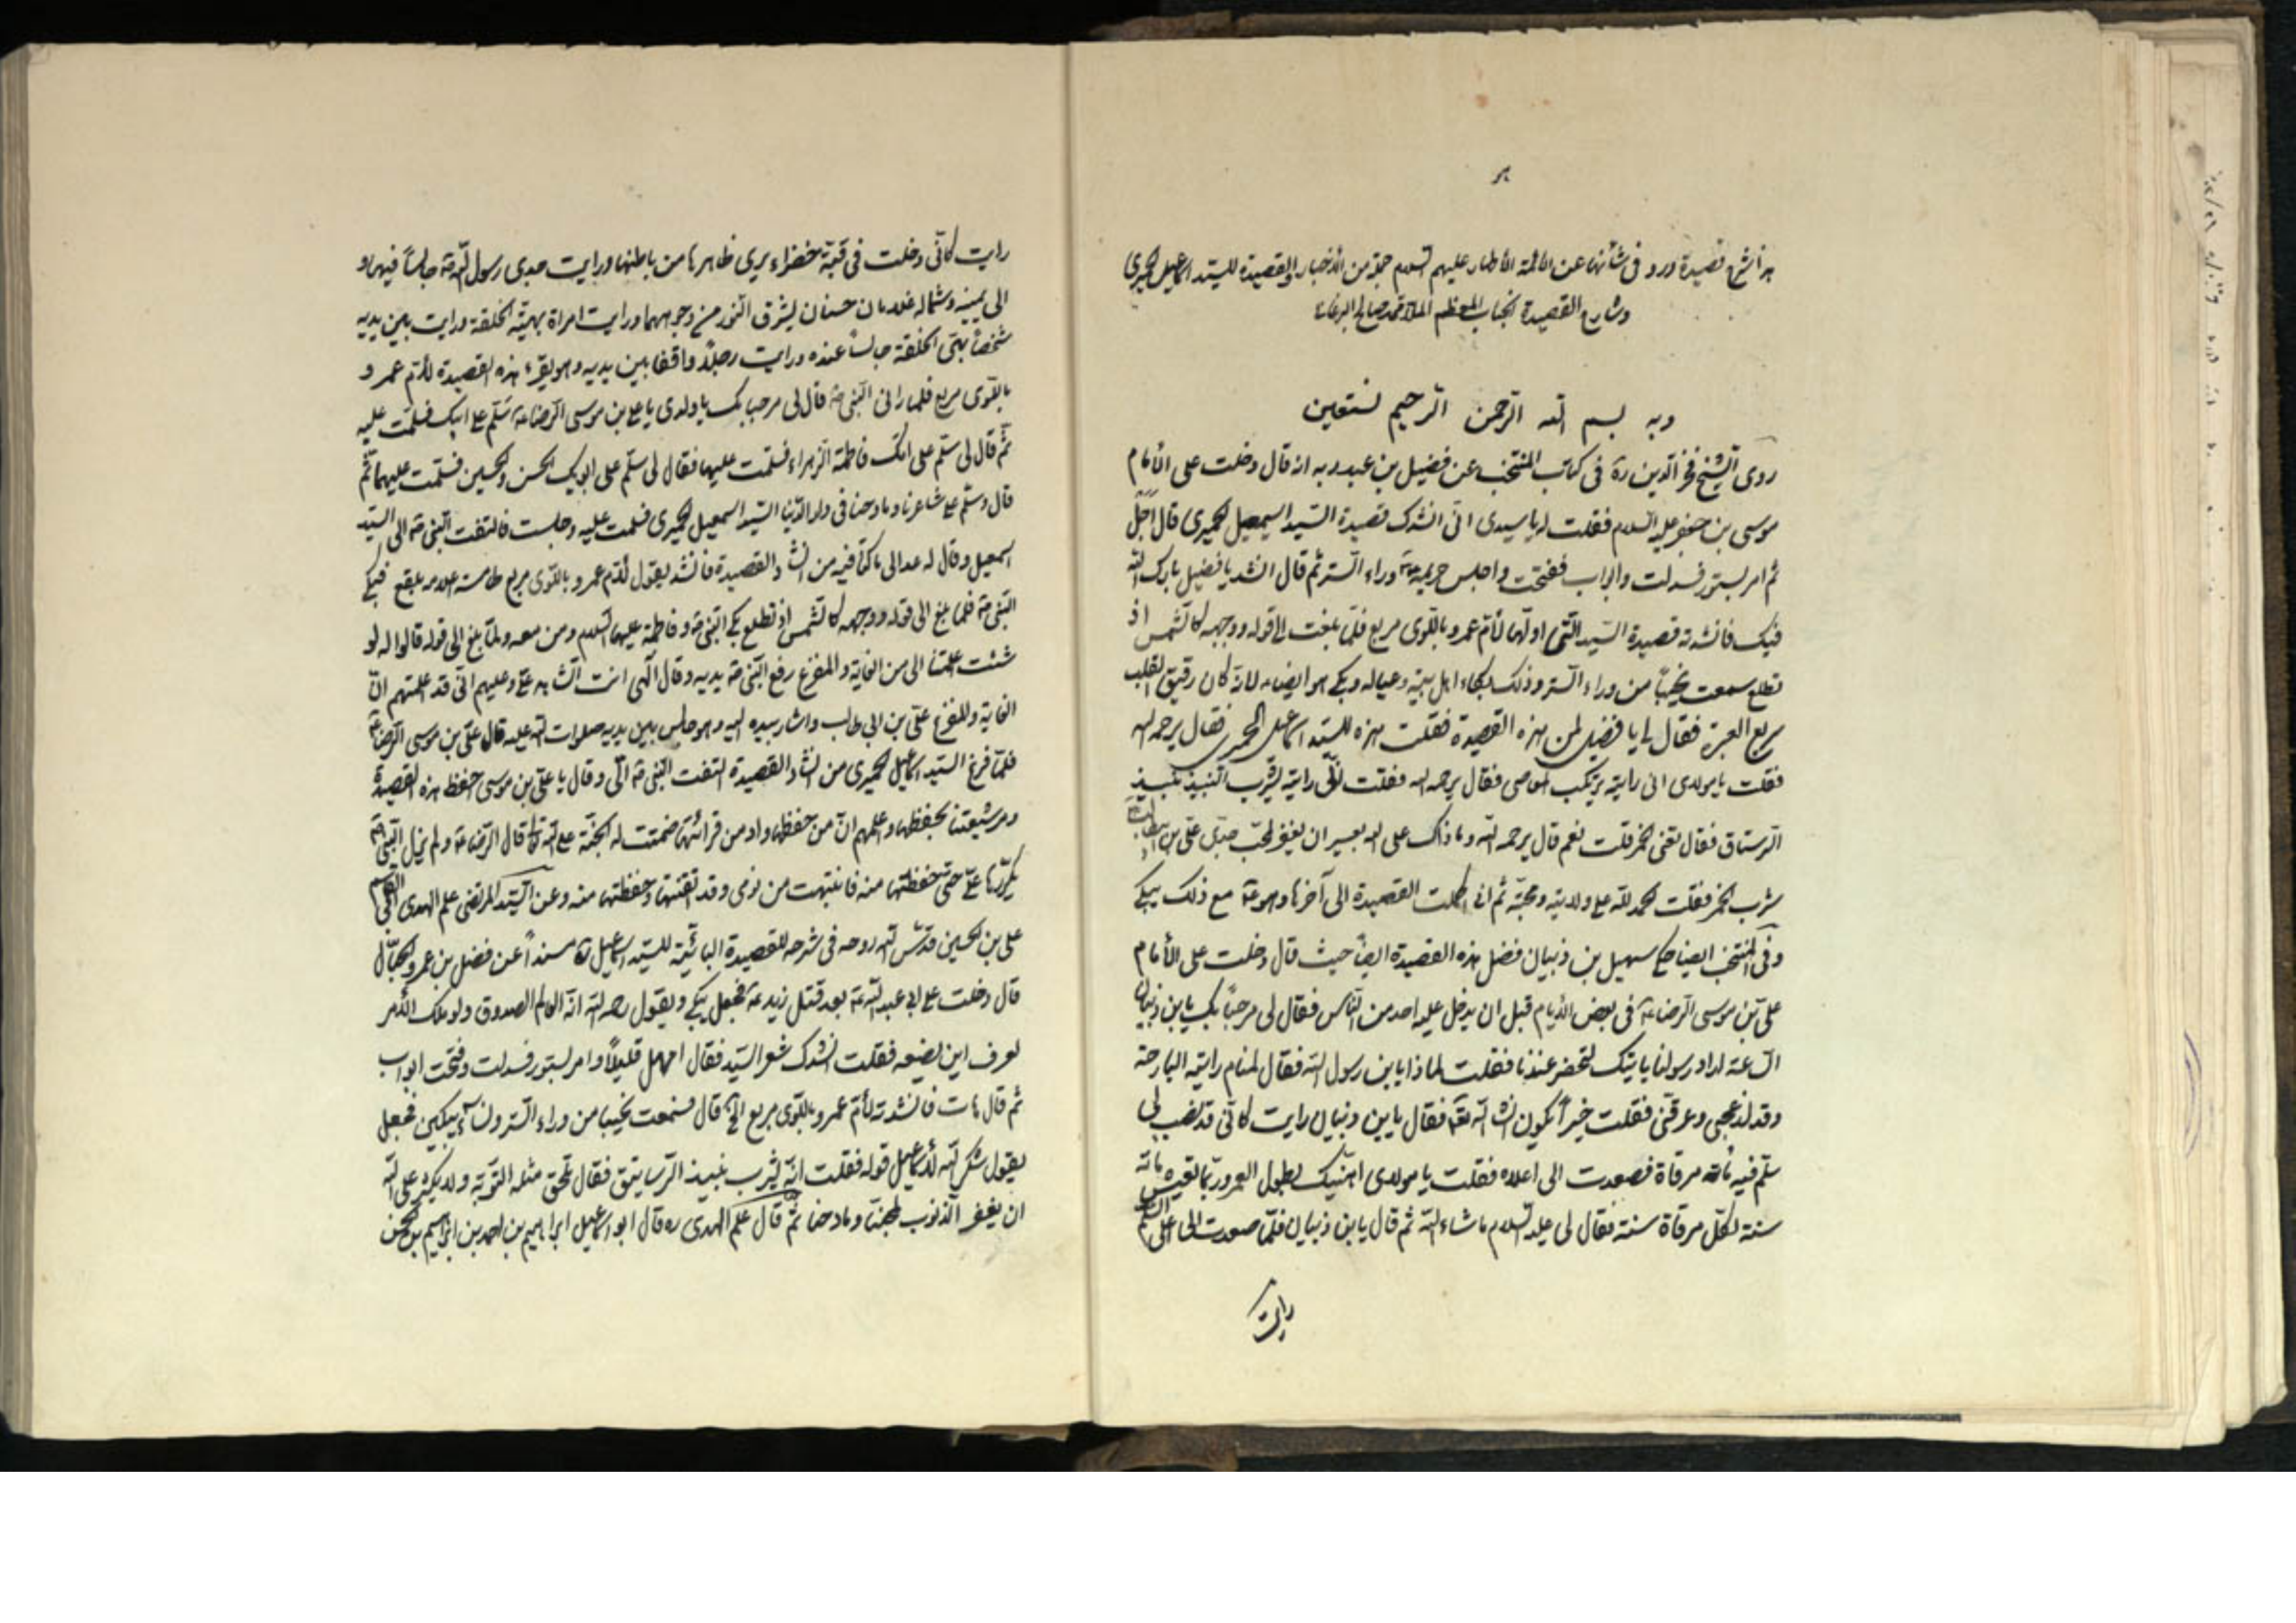 هذا شرح قصيدة ورد فى شأنها عن الائمة الأطهار عليهم السلام جملة من الأخبار والقصيدة للسيد اسماعيل الحميرى
وشارح القصيدة الجناب المعظم الملا محمد صالح البرغانى
وبه بسم الله الرحمن الرحيم نستعين
روى الشيخ فخر الدين ره فى كتاب المنتخب عن فضيل بن عبد ربه انه قال دخلت على الأمام
موسى بن جعفر عليه السلام فقلت له يا سيدى انى انشدك قصيدة السيد اسمعيل الحميرى قال اجل
ثم امر بستور فسدلت وابواب ففتحت واجلس حريمه وراء الستر ثم قال انشد يا فضيل بارك الله
فيك فانشدته قصيدة السيد التى اولها لأم عمرو باللوى مربع فلما بلغت الى قوله ووجهه كالشمس اذ
تطلع سمعت نحيبا من وراء الستر وذلك لبكاء اهل بيته وعياله وبكى هو ايضا لانه كان رقيق القلب
سريع العبرة فقال لى يا فضيل لمن هذه القصيدة فقلت هذه للسيد اسماعيل الحميرى فقال يرحمه الله
فقلت يا مولاى انى رايته يرتكب المعاصى فقال يرحمه الله فقلت انى رايته يشرب النبيذ نبيذ
الرستاق فقال تعنى الخمر قلت نعم قال يرحمه الله وما ذاك على الله بعسير ان يغفر لمحب جدى على بن ابيطالب
شرب الخمر فقلت الحمد لله على ولايته ومحبته ثم انى اكملت القصيدة الى آخرها وهو مع ذلك يبكى
وفى المنتخب ايضا حكى سهيل بن ذبيان فضل هذه القصيدة ايضا حيث قال دخلت على الأمام
على بن موسى الرضا فى بعض الأيام قبل ان يدخل عليه احد من الناس فقال لى مرحبا بك يا بن ذبيان
الساعة اراد رسولنا ياتيك لتحضر عندنا فقلت لماذا يا بن رسول الله فقال لمنام رايته البارحة
وقد ازعجنى وارقنى فقلت خيرا يكون انشاء الله تعالى فقال يا بن ذبيان رايت كانى قد نصب لى
سلم فيه مائة مرقاة فصعدت الى اعلاه فقلت يا مولاى اهنيك بطول العمر وربما تعيش مائة
سنة لكل مرقاة سنة فقال لى عليه السلام ما شاء الله ثم قال يا بن ذبيان فلما صعدت الى اعلى السلم
رايت
رايت كانى دخلت فى قبة خضراء يرى ظاهرها من باطنها ورايت جدى رسول الله جالسا فيها و
الى يمينه وشماله غلامان حسنان يشرق النور من وجوههما ورايت امراة بهية الخلقة ورايت بين يديه
شخصا بهى الخلقة جالسا عنده ورايت رجلا واقفا بين يديه وهو يقرء هذه القصيدة لأم عمرو
باللوى مربع فلما رانى النبى قال لى مرحبا بك يا ولدى يا على بن موسى الرضا سلم على ابيك فسلمت عليه
ثم قال لى سلم على امك فاطمة الزهراء فسلمت عليها فقال لى سلم على ابويك الحسن والحسين فسلمت عليهما ثم
قال وسلم على شاعرنا ومادحنا فى دار الدنيا السيد اسمعيل الحميرى فسلمت عليه وجلست فالتفت النبى الى السيد
اسمعيل وقال له عد الى ما كنا فيه من انشاد القصيدة فانشد يقول لأم عمرو باللوى مربع طامسة اعلامه بلقع فبكى
النبى فلما بلغ الى قوله ووجهه كالشمس اذ تطلع بكى النبى وفاطمة عليها السلام ومن معه ولما بلغ الى قوله قالوا له لو
شئت علمتنا الى من الغاية والمفزع رفع النبى يديه وقال الهى انت الشاهد على وعليهم انى قد علمتهم ان
الغاية والمفزع على بن ابى طالب واشار بيده اليه وهو جالس بين يديه صلوات الله عليه قال على بن موسى الرضا
فلما فرغ السيد اسماعيل الحميرى من انشاد القصيدة التفت النبى الى وقال يا على بن موسى احفظ هذه القصيدة
ومر شيعتنا بحفظها واعلمهم ان من حفظها وادمن قرائتها ضمنت له الجنة على الله تعالى قال الرضا ولم يزل النبى
يكررها على حتى حفظتها منه فانتبهت من نومى وقد اتقنتها وحفظتها منه وعن السيد المرتضى علم الهدى
على بن الحسين قدس الله روحه فى شرحه للقصيدة البائية للسيد اسماعيل مسندا عن فضل بن عمرو الحبال
قال دخلت على ابى عبد الله بعد قتل زيد فجعل يبكى ويقول رحمه الله انه العالم الصدوق ولو ملك الأمر
لعرف اين يضعه فقلت انشدك شعر السيد فقال امهل قليلا وامر بستور فسدلت وفتحت ابواب
ثم قال هات فانشدته لأم عمرو باللوى مربع الخ قال فسمعت نحيبا من وراء الستر ونساء يبكين فجعل
يقول شكر الله لأسماعيل قوله فقلت انه يشرب نبيذ الرساتيق فقال تلحق مثله التوبة ولا يكبر على الله
ان يغفر الذنوب لمحبنا ومادحنا ثم قال علم الهدى ره قال ابو اسماعيل ابراهيم بن احمد بن ابراهيم بن الحسن